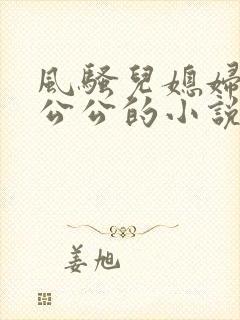 風騷兒媳婦
公公的小說
姜旭